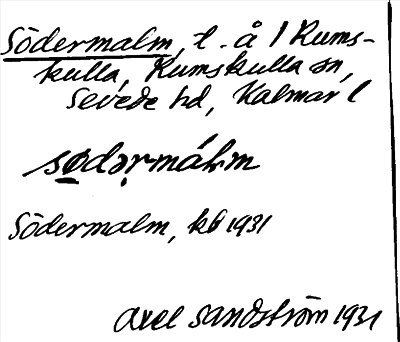 Södermalm, t. å 1 Rums-
kulla, Rumskulla sn,
Sevede hd, Kalmar l
sødərmálm
Södermalm, kb 1931
Axel Sandström 1931